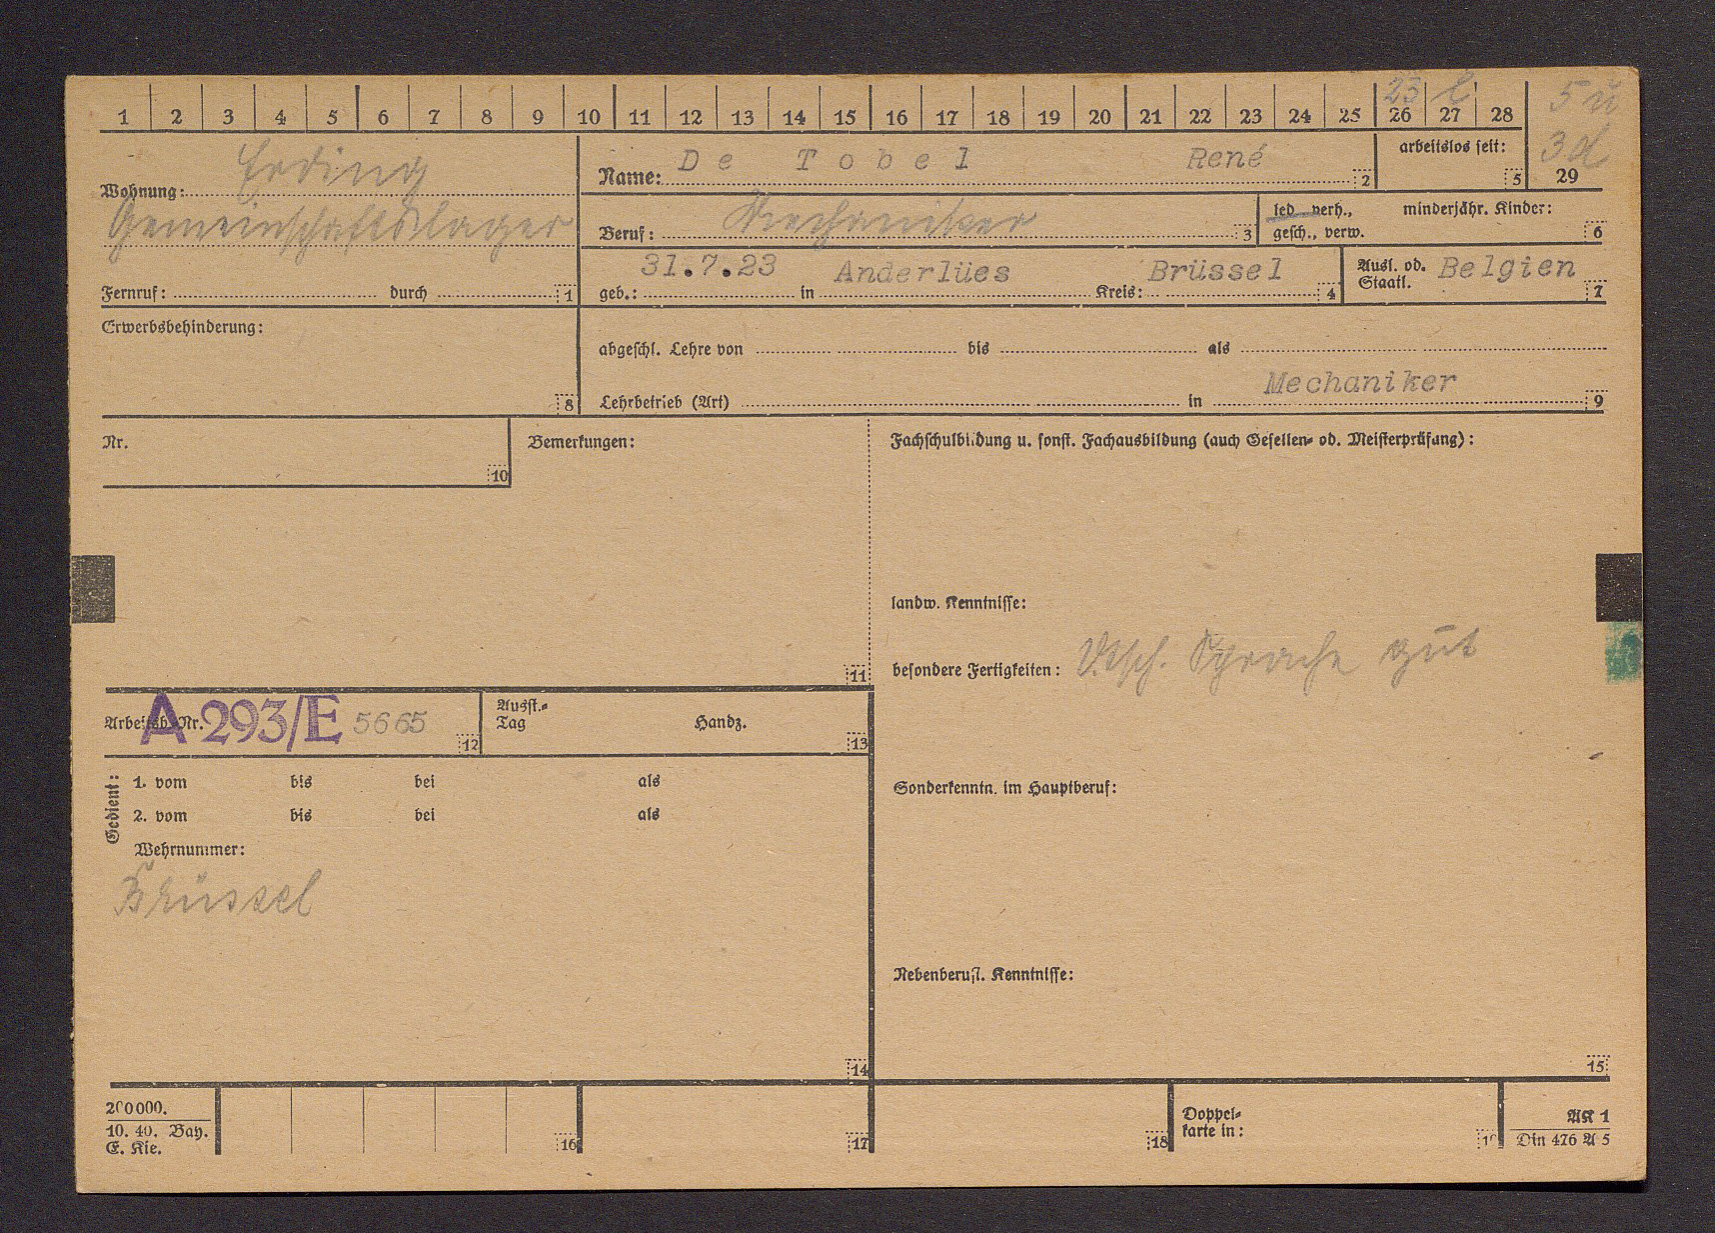 23 l 5 u
1 2 3 4 5 6 7 8 9 10 11 12 13 14 15 16 17 18 19 20 21 22 23 24 25 26 27 28
3d
29
Erding
Wohnung:
Gemeinschaftslager
Fernruf: durch 1
Name: De Tobel René 2
arbeitslos seit: 5
Beruf: Mechaniker 3
led verh., minderjähr. Kinder:
gesch., verw. 6
geb.: 31.7.23 in Anderlües Kreis: Brüssel 4
Ausl. od. Belgien
Staatl. 7
Erwerbsbehinderung:
8
abgeschl. Lehre von bis als
Lehrbetrieb (Art) in Mechaniker 9
Nr.
10
Bemerkungen:
11
Fachschulbildung u. sonst. Fachausbildung (auch Gesellen- od. Meisterprüfung):
landw. Kenntnisse:
besondere Fertigkeiten: Dtsch. Sprache gut
Arbeitsb.-Nr. A 293/E 5665 12
Ausst.-
Tag Handz. 13
Gedient:
1. vom bis bei als
2. vom bis bei als
Wehrnummer:
Brüssel
14
Sonderkenntn. im Hauptberuf:
Nebenberufl. Kenntnisse:
15
200000.
10. 40. Bay.
E. Kie.
16 17 18
Doppel-
karte in: 19
AK 1
Din 476 A 5